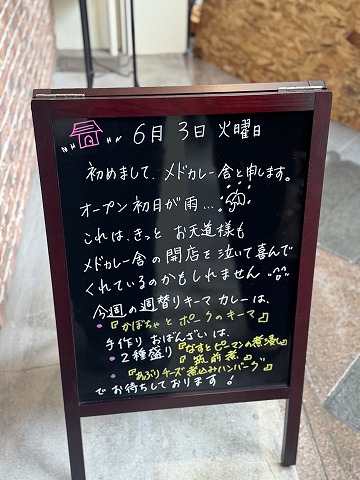 6月 3日 火曜日
初めまして、メドカレー舎と申します。
オープン初日が雨…
これは、きっと お天道様も
メドカレー舎の開店を泣いて喜んで
くれているのかもしれません
今週の週替りキーマカレーは、
・『かぼちゃとポークのキーマ』
手作り おばんざいは、
・2種盛り『なすとピーマンの煮浸し』
『筑前煮』
・『あぶりチーズ煮込みハンバーグ』
でお待ちしております!